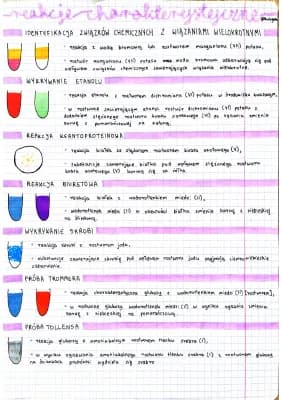 reakcje charakterystyczne
IDENTYFIKACJA ZWIĄZKÓW CHEMICZNYCH Z WIĄZANIAMI WIELOKROTNYMI
- reakcja z wodą bromową lub roztworem manganianu (VII) potasu,
- roztwór manganianu (VII) potasu oraz woda bromowa odbarwiają się pod
wpływem związku chemicznego zawierającego wiązania wielokrotne.
WYKRYWANIE ETANOLU
- reakcja etanolu z roztworem dichromianu (VI) potasu w środowisku kwasowym,
- w roztworze zawierającym etanol roztwór dichromianu (VI) potasu z
dodatkiem stężonego roztworu kwasu siarkowego (VI) po ogrzaniu zmienia
barwę z pomarańczowej na zieloną.
REAKCJA KSANTOPROTEINOWA
- reakcja białka ze stężonym roztworem kwasu azotowego (V),
- substancje zawierające białko pod wpływem stężonego roztworu
kwasu azotowego (V) barwią się na żółto.
REAKCJA BIURETOWA
- reakcja białek z wodorotlenkiem miedzi (II),
- wodorotlenek miedzi (II) w obecności białka zmienia barwę z niebieskiej
na fioletową.
WYKRYWANIE SKROBI
- reakcja skrobi z roztworem jodu,
- substancje zawierające skrobię pod wpływem roztworu jodu przyjmują ciemnoniebieskie
zabarwienie.
PRÓBA TROMMERA
- reakcja charakterystyczna glukozy z wodorotlenkiem miedzi (II)
- w roztworze glukozy wodorotlenek miedzi (II) w wyniku ogrzania zmienia
barwę z niebieskiej na pomarańczową.
PRÓBA TOLLENSA
- reakcja glukozy z amoniakalnym roztworem tlenku srebra (I),
- w wyniku ogrzewania amoniakalnego roztworu tlenku srebra (I) z roztworem glukozy
na ściankach probówki wydziela się srebro